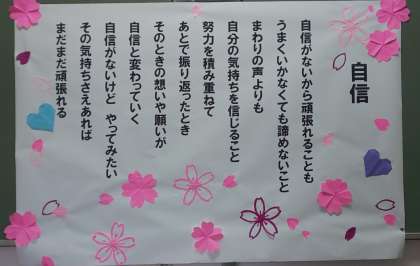 自信
自信がないから頑張れることも
うまくいかなくても諦めないこと
まわりの声よりも
自分の気持ちを信じること
努力を積み重ねて
あとで振り返ったとき
そのときの想いや願いが
自信と変わっていく
自信がないけど やってみたい
その気持ちさえあれば
まだまだ頑張れる